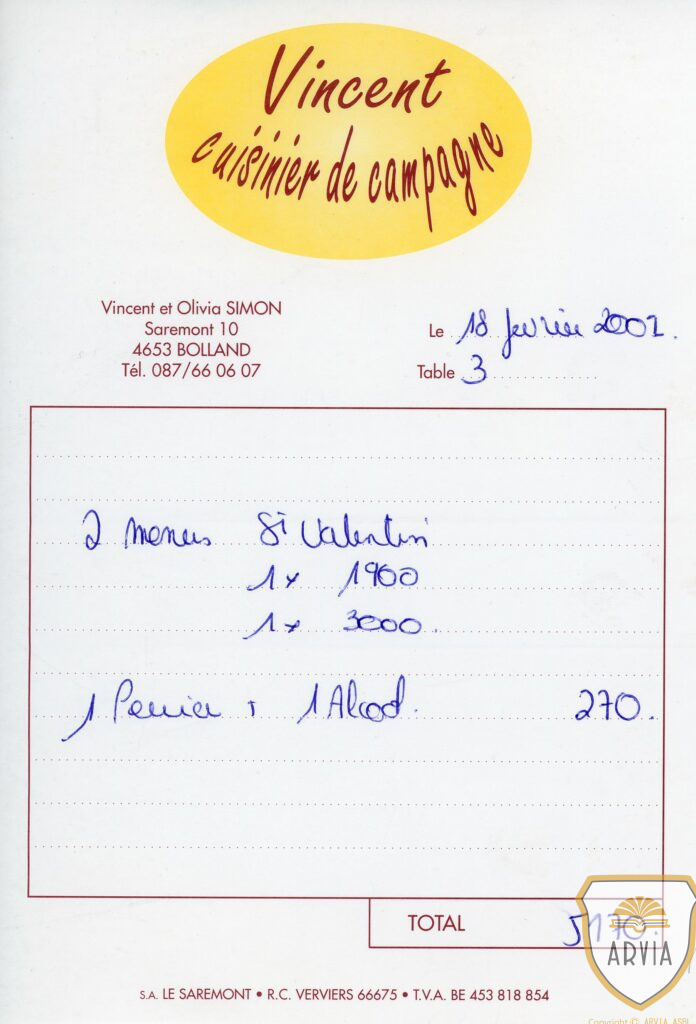 Vincent
cuisinier de campagne
Vincent et Olivia SIMON
Saremont 10
4653 BOLLAND
Tél. 087/66 06 07
Le 18 février 2001.
Table 3
2 menus St Valentin
1x 1900
1x 3000.
1 Perrier + 1 Alcool. 270.
TOTAL 5170.
ARVIA
S.A. LE SAREMONT • R.C. VERVIERS 66675 • T.V.A. BE 453 818 854
Copyright © ARVIA ASBL